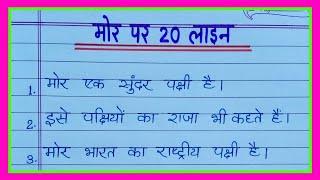 मोर पर 20 लाइन
1. मोर एक सुंदर पक्षी है।
2. इसे पक्षियों का राजा भी कहते हैं।
3. मोर भारत का राष्ट्रीय पक्षी है।